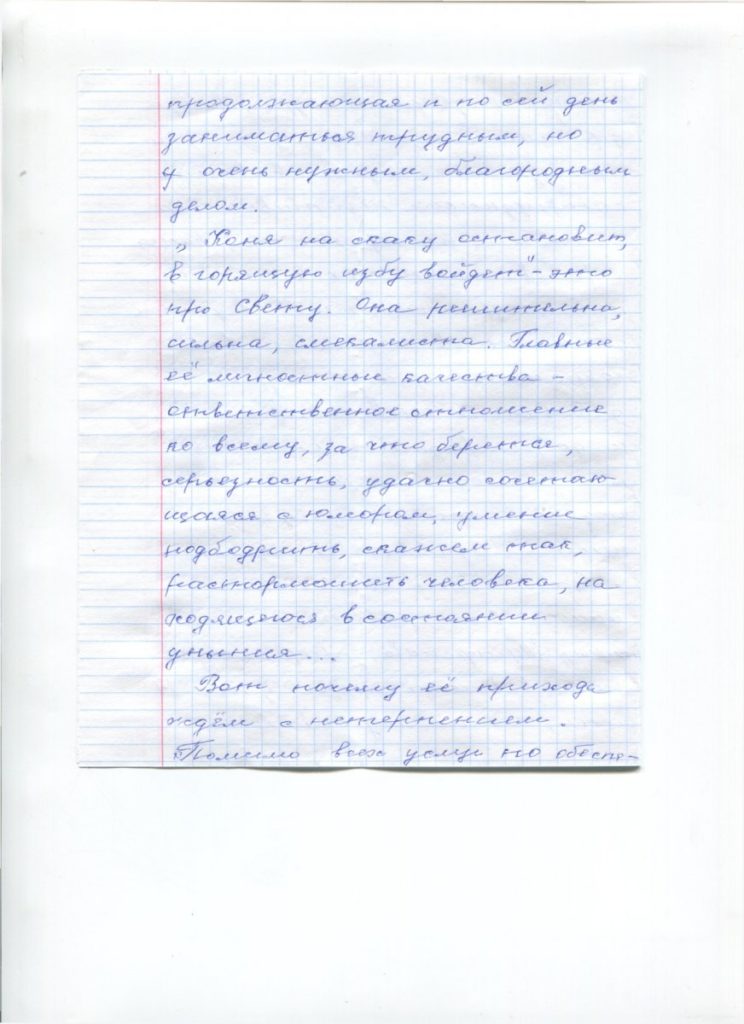 продолжающая и по сей день
заниматься трудным, но
и очень нужным, благородным
делом.
„Коня на скаку остановит,
в горящую избу войдет" – это
про Свету. Она решительна,
сильна, смекалиста. Главные
её личностные качества –
ответственное отношение
ко всему, за что берется,
серьезность, удачно сочетаю-
щаяся с юмором, умение
подбодрить, скажем так,
растормошить человека, на
ходящегося в состоянии
уныния...
Вот почему её прихода
ждём с нетерпением.
Помимо всех услуг по обеспе-